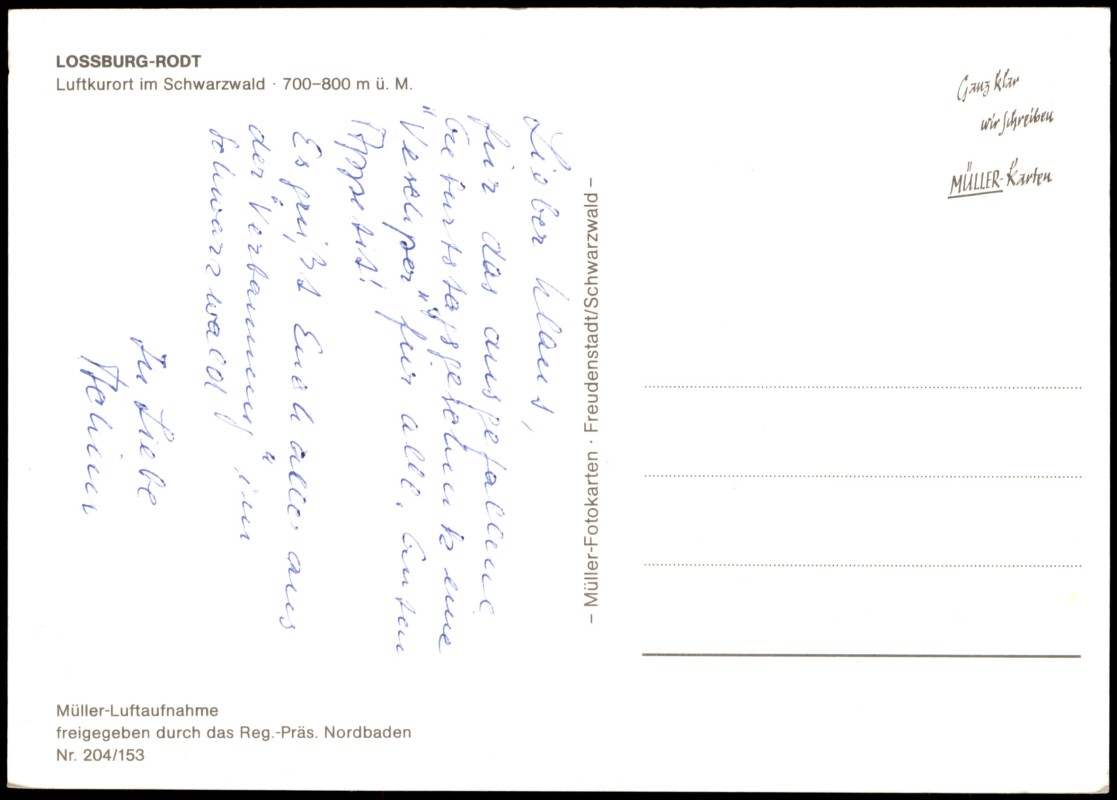 LOSSBURG-RODT
Luftkurort im Schwarzwald · 700–800 m ü. M.
Ganz klar
wir schreiben
MÜLLER-Karten
Lieber Klaus,
für das ausgefallene
Geburtstagsgeschenk eine
"Veschper" für alle. Guten
Appetit!
Es grüßt Euch alle aus
der "Verbannung" im
Schwarzwald!
In Liebe
– Müller-Fotokarten · Freudenstadt/Schwarzwald –
Müller-Luftaufnahme
freigegeben durch das Reg.-Präs. Nordbaden
Nr. 204/153